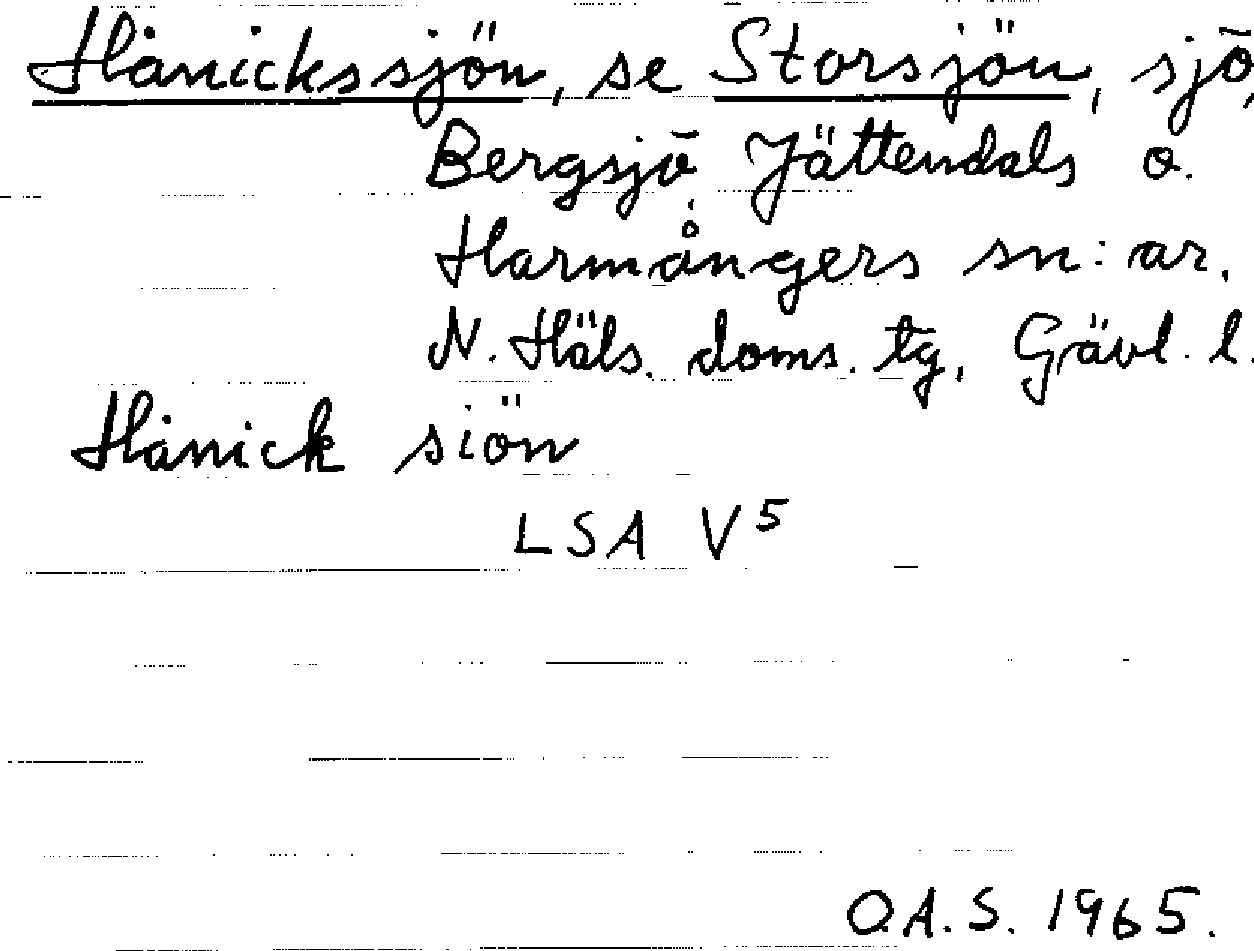 Hånickssjön, se Storsjön, sjö,
Bergsjö Jättendals o.
Harmångers sn:ar,
N. Häls. doms. tg, Gävl. l.
Hånick siön
LSA V5
O.A.S. 1965.